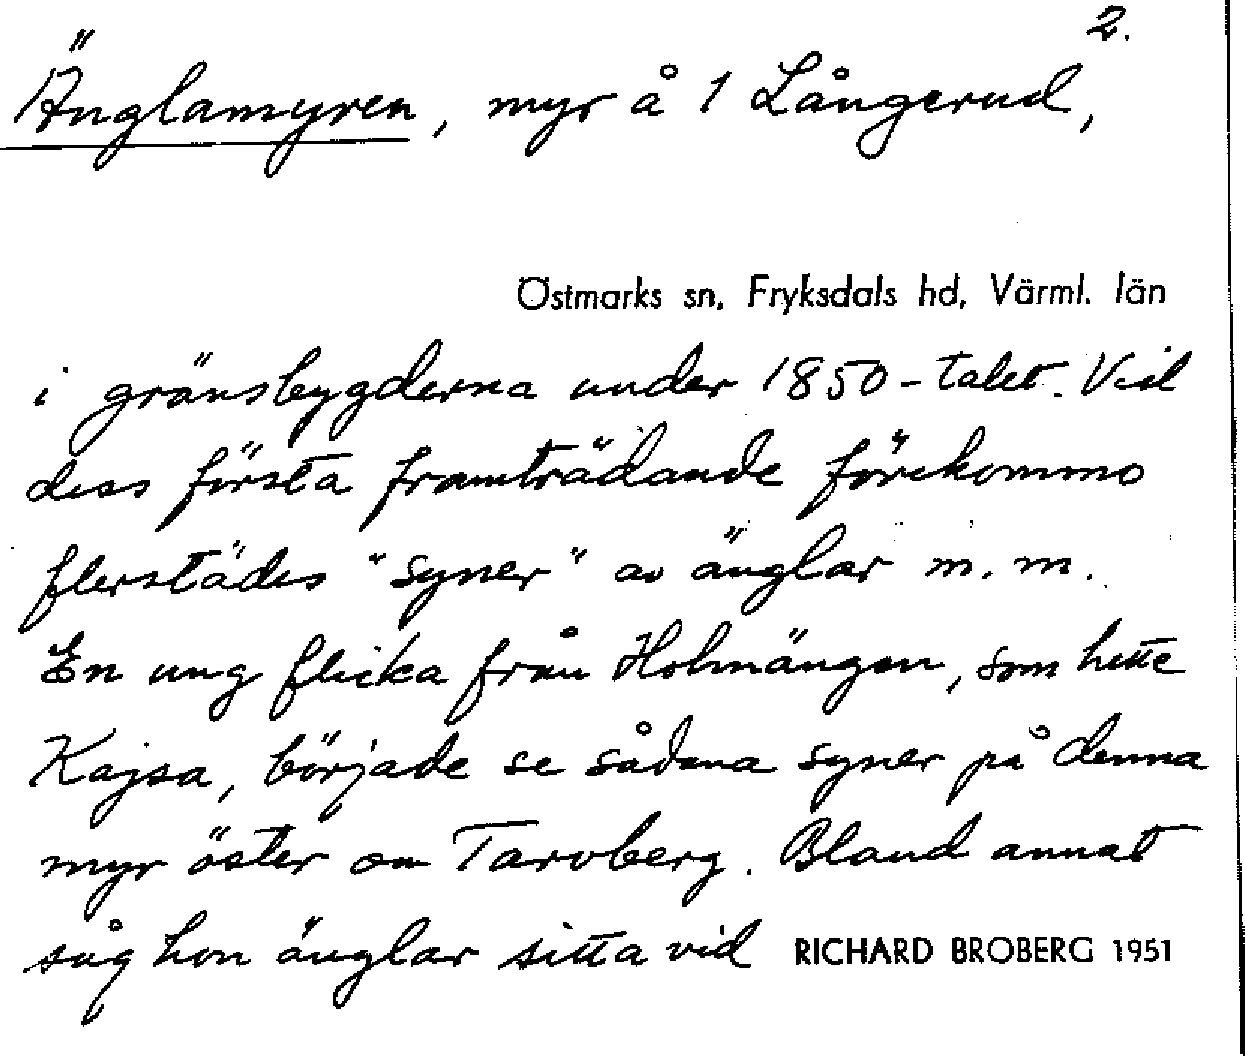 2.
Änglamyren, myr å 1 Långerud,
Östmarks sn, Fryksdals hd, Värml. län
i gränsbygderna under 1850-talet. Vid
dess första framträdande förekommo
flerstädes "syner" av änglar m. m.
En ung flicka från Holmängen, som hette
Kajsa, började se sådana syner på denna
myr öster om Tarvberg. Bland annat
såg hon änglar sitta vid RICHARD BROBERG 1951